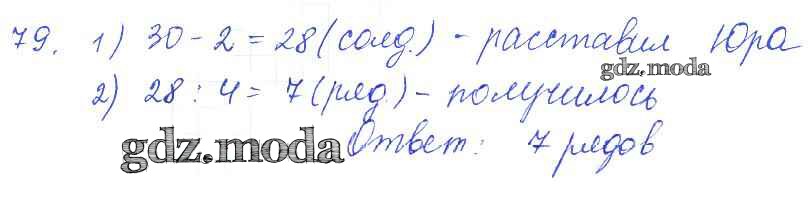 79. 1) 30 - 2 = 28 (солд.) - расставил Юра
gdz.moda
2) 28 : 4 = 7 (ряд.) - получилось
gdz.moda Ответ: 7 рядов